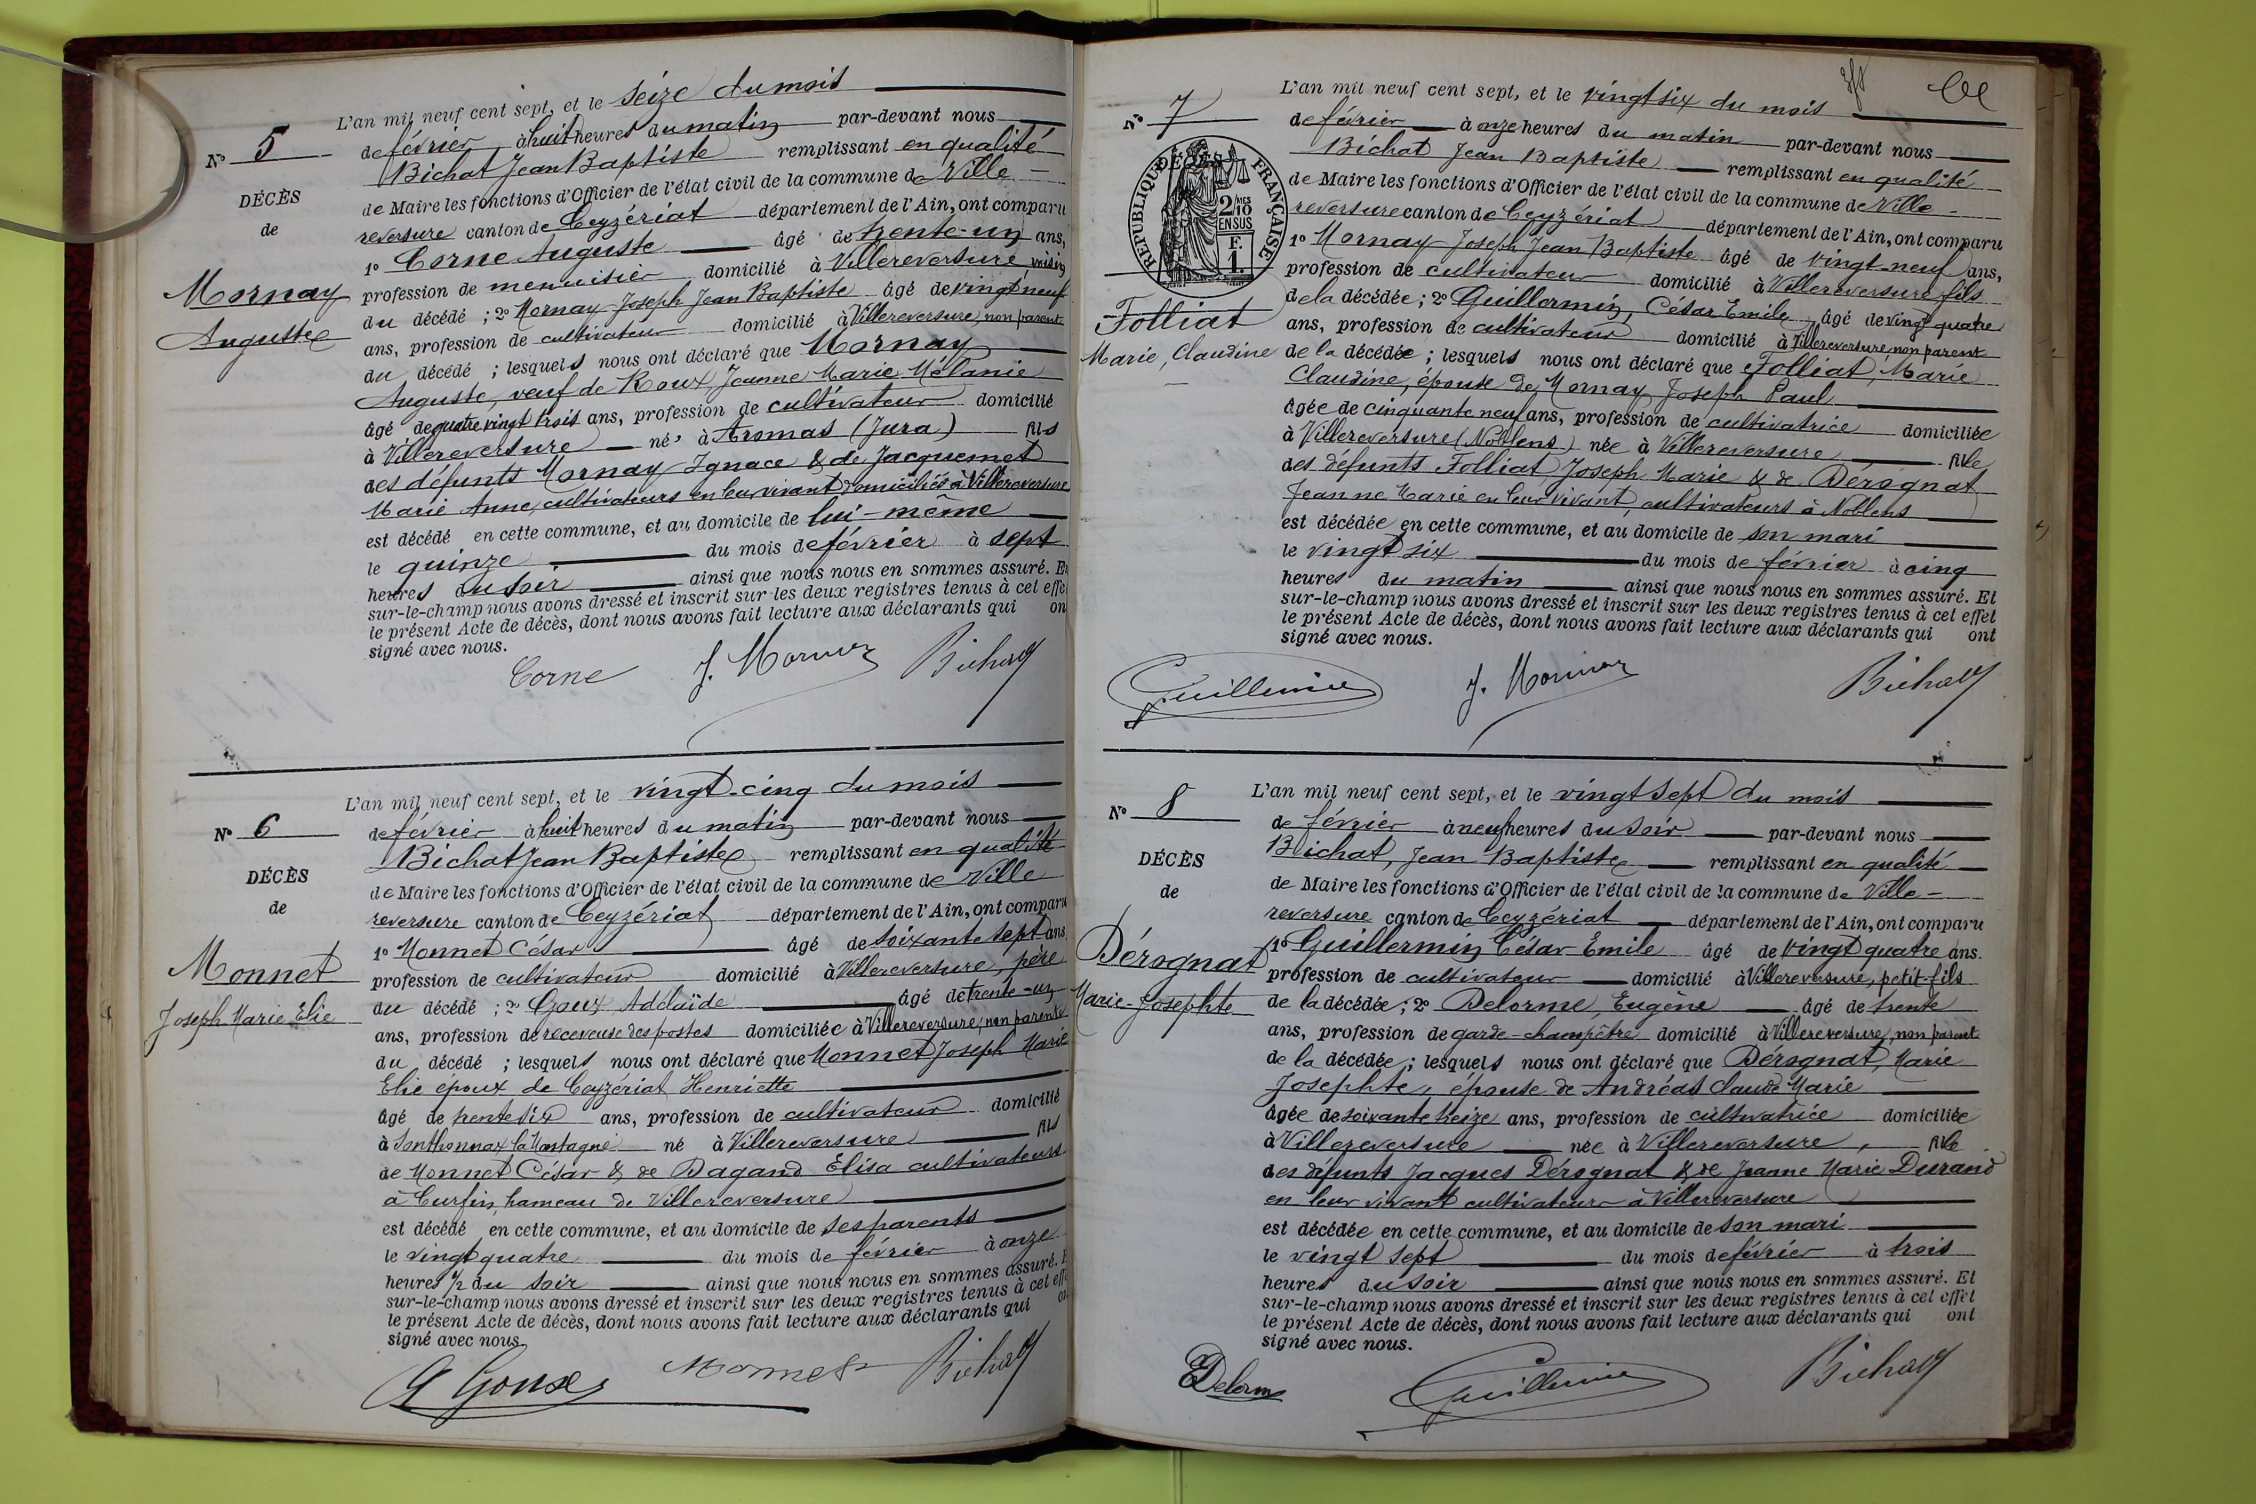 L'an mil neuf cent sept, et le seize du mois
N° 5
de février à huit heures du matin par-devant nous
Bichat Jean Baptiste remplissant en qualité
DÉCÈS
de Maire les fonctions d'Officier de l'état civil de la commune de Ville-
de
reversure canton de Ceyzériat département de l'Ain, ont comparu
1° Corne Auguste âgé de trente-un ans,
Mornay
profession de menuisier domicilié à Villereversure, voisin
du décédé ; 2° Mornay Joseph Jean Baptiste âgé de vingt neuf
Auguste
ans, profession de cultivateur domicilié à Villereversure, non parent
du décédé ; lesquels nous ont déclaré que Mornay
Auguste, veuf de Roux, Jeanne Marie Mélanie
âgé de quatre vingt trois ans, profession de cultivateur domicilié
à Villereversure né à Aromas (Jura) fils
des défunts Mornay Ignace & de Jacquemet
Marie Anne, cultivateurs en leur vivant domiciliés à Villereversure
est décédé en cette commune, et au domicile de lui-même
le quinze du mois de février à sept
heures du soir ainsi que nous nous en sommes assuré. Et
sur-le-champ nous avons dressé et inscrit sur les deux registres tenus à cet effet
le présent Acte de décès, dont nous avons fait lecture aux déclarants qui ont
signé avec nous.
Corne J. Mornay Bichat
L'an mil neuf cent sept, et le vingt-cinq du mois
N° 6
de février à huit heures du matin par-devant nous
Bichat Jean Baptiste remplissant en qualité
DÉCÈS
de Maire les fonctions d'Officier de l'état civil de la commune de Ville
de
reversure canton de Ceyzériat département de l'Ain, ont comparu
1° Monnet César âgé de soixante sept ans
Monnet
profession de cultivateur domicilié à Villereversure, père
Joseph Marie Elie
du décédé ; 2° Goux Adélaïde âgé de trente-un
ans, profession de receveuse des postes domiciliée à Villereversure, non parente
du décédé ; lesquels nous ont déclaré que Monnet Joseph Marie
Elie époux de Ceyzériat Henriette
âgé de trente six ans, profession de cultivateur domicilié
à Sonthonnax la Montagne né à Villereversure fils
de Monnet César & de Dagand Elisa cultivateurs
à Curfin, hameau de Villereversure
est décédé en cette commune, et au domicile de ses parents
le vingt quatre du mois de février à onze
heures ½ du soir ainsi que nous nous en sommes assuré. E
sur-le-champ nous avons dressé et inscrit sur les deux registres tenus à cet effe
le présent Acte de décès, dont nous avons fait lecture aux déclarants qui on
signé avec nous.
A Goux Monnet Bichat
L'an mil neuf cent sept, et le vingt six du mois
N° 7
de février à onze heures du matin par-devant nous
Bichat Jean Baptiste remplissant en qualité
DÉCÈS
RÉPUBLIQUE FRANÇAISE
2/10MES
EN SUS
F.
1.
de Maire les fonctions d'Officier de l'état civil de la commune de Ville-
reversure canton de Ceyzériat département de l'Ain, ont comparu
1° Mornay Joseph Jean Baptiste âgé de vingt-neuf ans,
profession de cultivateur domicilié à Villereversure fils
Folliat
de la décédée ; 2° Guillermin, César Emile âgé de vingt quatre
ans, profession de cultivateur domicilié à Villereversure, non parent
Marie, Claudine
de la décédée ; lesquels nous ont déclaré que Folliat, Marie
Claudine, épouse de Mornay Joseph Paul
âgée de cinquante neuf ans, profession de cultivatrice domiciliée
à Villereversure (Noblens) née à Villereversure fille
des défunts Folliat Joseph Marie & de Dérognat
Jeanne Marie en leur vivant, cultivateurs à Noblens
est décédée en cette commune, et au domicile de son mari
le vingt six du mois de février à cinq
heures du matin ainsi que nous nous en sommes assuré. Et
sur-le-champ nous avons dressé et inscrit sur les deux registres tenus à cet effet
le présent Acte de décès, dont nous avons fait lecture aux déclarants qui ont
signé avec nous.
Guillermin J. Mornay Bichat
L'an mil neuf cent sept, et le vingt sept du mois
N° 8
de février à neuf heures du soir par-devant nous
Bichat, Jean Baptiste remplissant en qualité
DÉCÈS
de Maire les fonctions d'Officier de l'état civil de la commune de Ville-
de
reversure canton de Ceyzériat département de l'Ain, ont comparu
1° Guillermin César Emile âgé de vingt quatre ans.
Dérognat
profession de cultivateur domicilié à Villereversure, petit-fils
Marie-Josephte
de la décédée ; 2° Delorme, Eugène âgé de trente
ans, profession de garde-champêtre domicilié à Villereversure, non parent
de la décédée ; lesquels nous ont déclaré que Dérognat, Marie
Josephte, épouse de Andréas Claude Marie
âgée de soixante treize ans, profession de cultivatrice domiciliée
à Villereversure née à Villereversure, fille
des défunts Jacques Dérognat & de Jeanne Marie Durand
en leur vivant cultivateurs à Villereversure
est décédée en cette commune, et au domicile de son mari
le vingt sept du mois de février à trois
heures du soir ainsi que nous nous en sommes assuré. Et
sur-le-champ nous avons dressé et inscrit sur les deux registres tenus à cet effet
le présent Acte de décès, dont nous avons fait lecture aux déclarants qui ont
signé avec nous.
E Delorme Guillermin Bichat